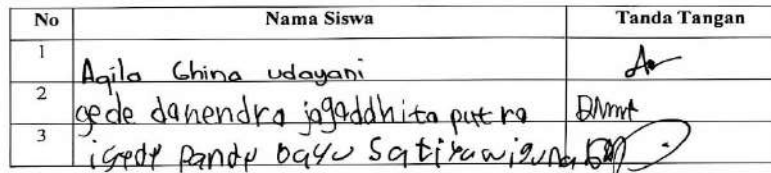 No Nama Siswa Tanda Tangan
1 Aqila Ghina udayani
2 gede danendra jagaddhita putra
3 i gede pande bayu